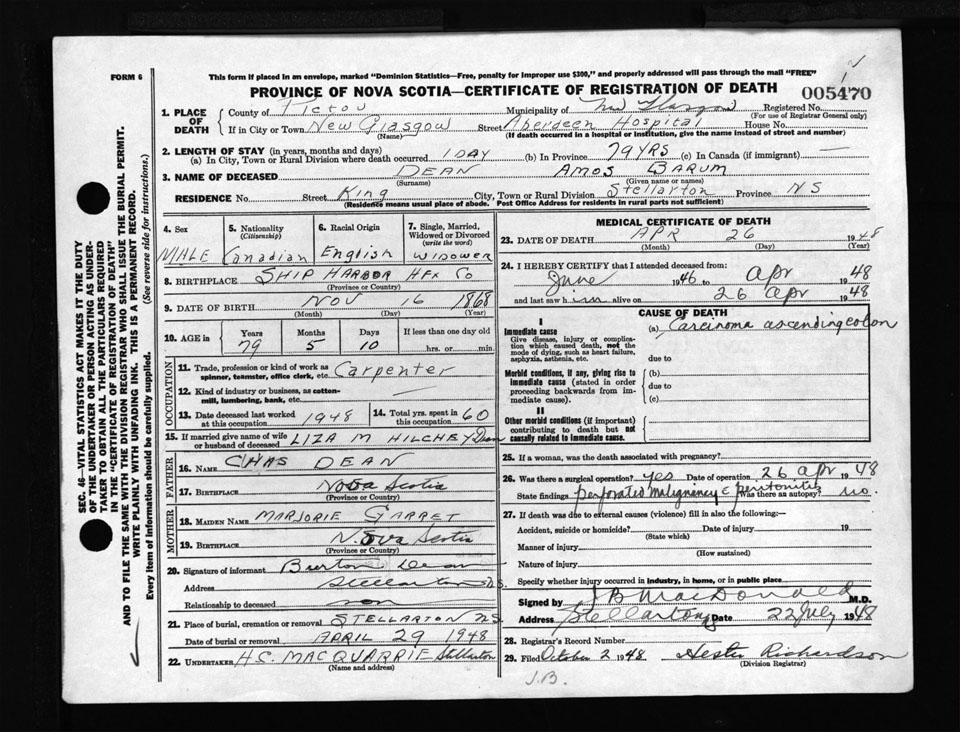 FORM 6
This form if placed in an envelope, marked "Dominion Statistics—Free, penalty for improper use $300," and properly addressed will pass through the mail "FREE"
PROVINCE OF NOVA SCOTIA—CERTIFICATE OF REGISTRATION OF DEATH
005470
1. PLACE OF DEATH
County of Pictou Municipality of New Glasgow Registered No.
(For use of Registrar General only)
If in City or Town New Glasgow Street Aberdeen Hospital House No.
(Name) (If death occurred in a hospital or institution, give the name instead of street and number)
2. LENGTH OF STAY (in years, months and days)
(a) In City, Town or Rural Division where death occurred 1 DAY (b) In Province 79 YRS (c) In Canada (if immigrant) —
3. NAME OF DECEASED DEAN AMOS BARUM
(Surname) (Given name or names)
RESIDENCE No. Street King City, Town or Rural Division Stellarton Province NS
(Residence means usual place of abode. Post Office Address for residents in rural parts not sufficient)
4. Sex
MALE
5. Nationality
(Citizenship)
Canadian
6. Racial Origin
English
7. Single, Married, Widowed or Divorced
(write the word)
WIDOWER
8. BIRTHPLACE SHIP HARBOR HFX Co
(Province or Country)
9. DATE OF BIRTH NOV 16 1868
(Month) (Day) (Year)
10. AGE in
Years Months Days If less than one day old
79 5 10 hrs. or min.
OCCUPATION
11. Trade, profession or kind of work as spinner, teamster, office clerk, etc. Carpenter
12. Kind of industry or business, as cotton-mill, lumbering, bank, etc. —
13. Date deceased last worked at this occupation 1948
14. Total yrs. spent in 60
15. If married give name of wife or husband of deceased LIZA M HILCHEY Dean
FATHER
16. NAME CHAS DEAN
17. BIRTHPLACE Nova Scotia
(Province or Country)
MOTHER
18. MAIDEN NAME MARJORIE GARRET
19. BIRTHPLACE Nova Scotia
(Province or Country)
20. Signature of informant Burton Dean
Address Stellarton N.S.
Relationship to deceased son
21. Place of burial, cremation or removal STELLARTON N.S.
Date of burial or removal APRIL 29 1948
22. UNDERTAKER H.S. MACQUARRIE Stellarton
(Name and address)
MEDICAL CERTIFICATE OF DEATH
23. DATE OF DEATH APR 26 1948
(Month) (Day) (Year)
24. I HEREBY CERTIFY that I attended deceased from:
June 1946 to Apr 1948
and last saw him alive on 26 Apr 1948
CAUSE OF DEATH
I
Immediate cause
Give disease, injury or complication which caused death, not the mode of dying, such as heart failure, asphyxia, asthenia, etc.
(a) Carcinoma ascending colon
due to
Morbid conditions, if any, giving rise to immediate cause (stated in order proceeding backwards from immediate cause).
(b)
due to
(c)
II
Other morbid conditions (if important) contributing to death but not causally related to immediate cause.
25. If a woman, was the death associated with pregnancy?
26. Was there a surgical operation? yes Date of operation 26 Apr 1948
State findings perforated malignancy c peritonitis Was there an autopsy? no.
27. If death was due to external causes (violence) fill in also the following:—
Accident, suicide or homicide? Date of injury 19
(State which)
Manner of injury
(How sustained)
Nature of injury
Specify whether injury occurred in industry, in home, or in public place
Signed by J B MacDonald M.D.
Address Stellarton Date 22 July 1948
28. Registrar's Record Number
29. Filed October 2 1948 Hester Richardson
(Division Registrar)
J.B.
SEC. 46—VITAL STATISTICS ACT MAKES IT THE DUTY
OF THE UNDERTAKER OR PERSON ACTING AS UNDER-
TAKER TO OBTAIN ALL THE PARTICULARS REQUIRED
IN THE "CERTIFICATE OF REGISTRATION OF DEATH"
AND TO FILE THE SAME WITH THE DIVISION REGISTRAR WHO SHALL ISSUE THE BURIAL PERMIT.
WRITE PLAINLY WITH UNFADING INK. THIS IS A PERMANENT RECORD.
Every item of information should be carefully supplied. (See reverse side for instructions.)